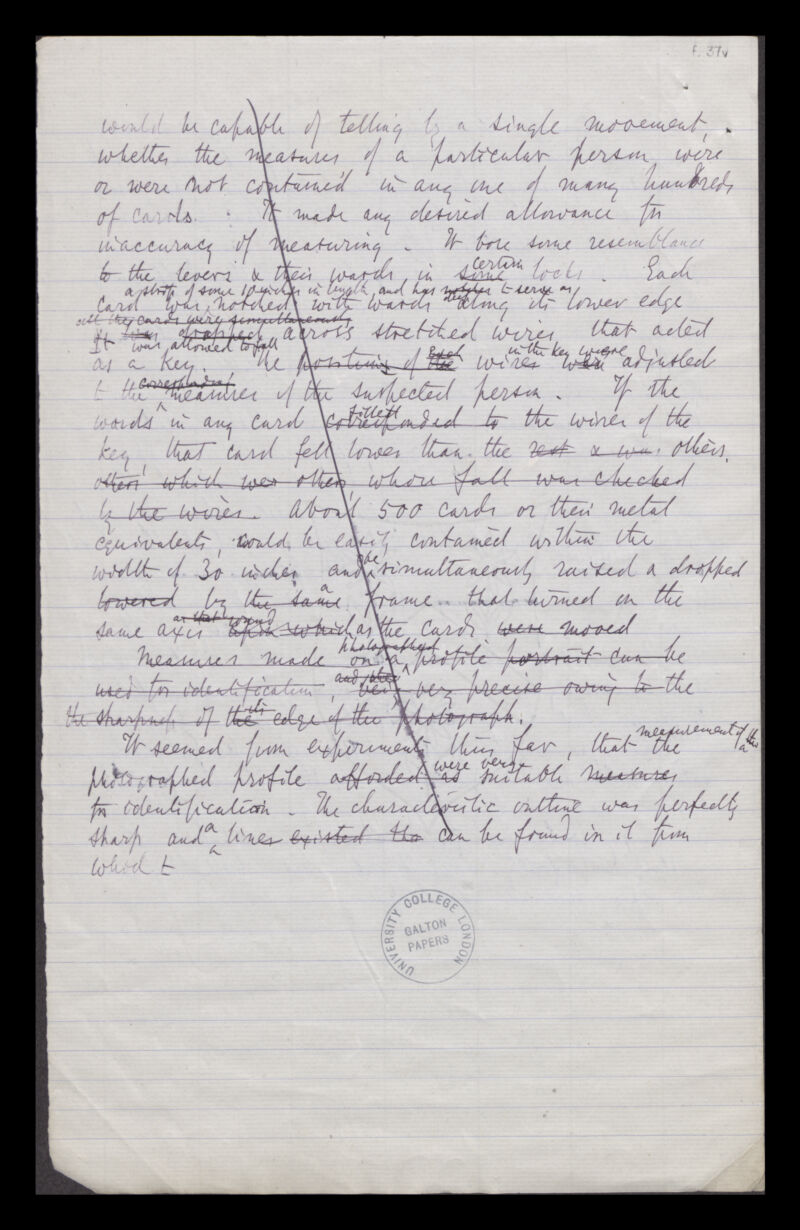 f. 37v
would be capable of telling by a single movement,
whether the measures of a particular person were
or were not contained in any one of many hundreds
of cards. It made any desired allowance for
inaccuracy of measuring. It bore some resemblance
certain
to the levers & their wards, in some locks. Each
a strip of some 10 inches in length, and has to serve as
card was notched with wards along its lower edge
all the cards were simultaneously
It dropped across stretched wires that acted
was allowed to fall
as a key. The positions of the wires were adjusted
Each in the key were
corresponding
to the measures of the suspected person. If the
fitted
wards in any card corresponded to the wires of the
key, that card fell lower than the rest & was others.
others which were others whose fall was checked
by the wires. About 500 cards or their metal
equivalents, could be easily contained within the
be
width of 30 inches and simultaneously raised & dropped
a
lowered by the same frame that turned on the
same axis upon which as the cards were moved
photographed
Measures made on a profile portrait can be
used for identification, very precise owing to the
the sharpness of the edge of the photograph.
its
measurement of the
It seemed from experiments thus far, that the
were very
photographed profile afforded as suitable measures
for identification. The characteristic outline was perfectly
sharp and lines existed tha can be found in it from
which t
UNIVERSITY COLLEGE LONDON
GALTON
PAPERS